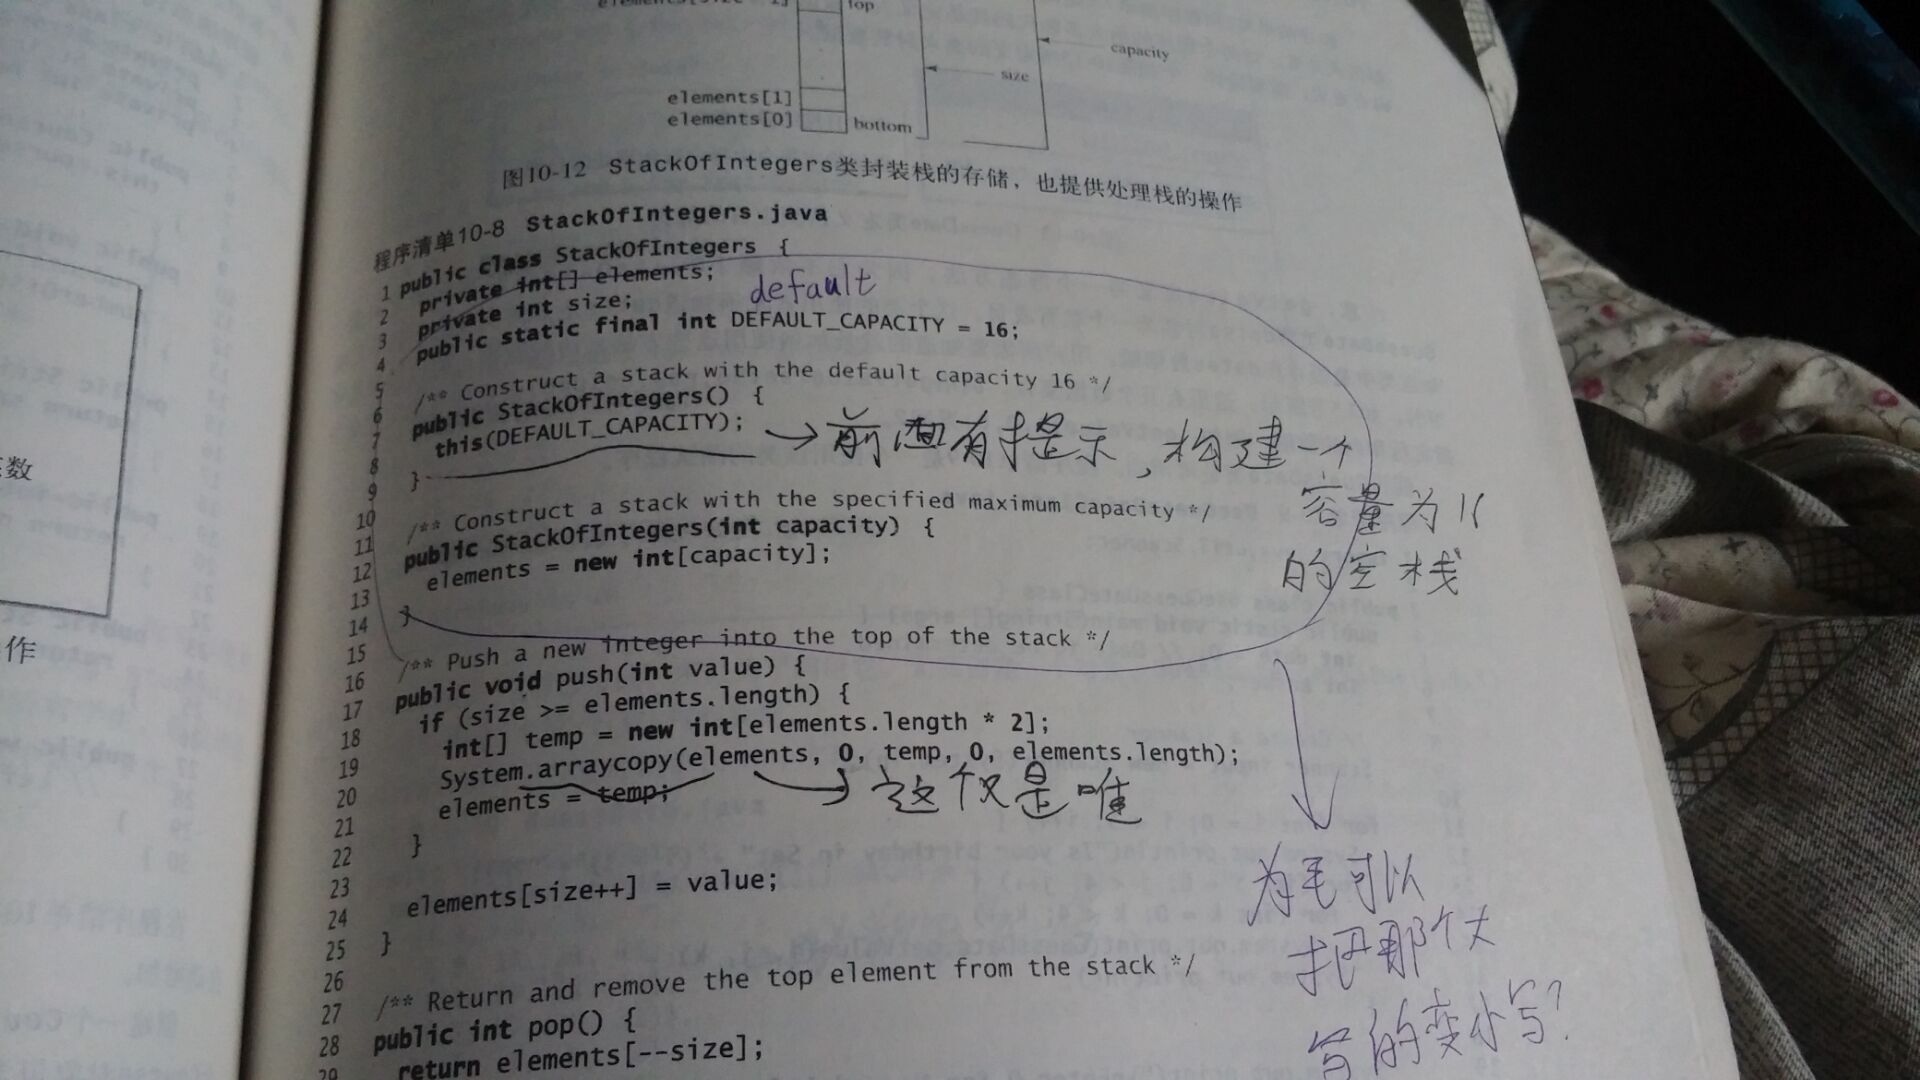 top
capacity
size
elements[1]
elements[0]
bottom
图10-12 StackOfIntegers类封装栈的存储，也提供处理栈的操作
程序清单10-8 StackOfIntegers.java
1 public class StackOfIntegers {
2 private int[] elements;
3 private int size;
default
4 public static final int DEFAULT_CAPACITY = 16;
5
6 /** Construct a stack with the default capacity 16 */
7 public StackOfIntegers() {
8 this(DEFAULT_CAPACITY);
→前面有提示，构建一个
容量为16
的空栈
9 }
10
11 /** Construct a stack with the specified maximum capacity */
12 public StackOfIntegers(int capacity) {
13 elements = new int[capacity];
14 }
15
16 /** Push a new integer into the top of the stack */
17 public void push(int value) {
18 if (size >= elements.length) {
19 int[] temp = new int[elements.length * 2];
20 System.arraycopy(elements, 0, temp, 0, elements.length);
21 elements = temp;
→这仅是
22 }
23
24 elements[size++] = value;
25 }
26
27 /** Return and remove the top element from the stack */
28 public int pop() {
29 return elements[--size];
为毛可以
把那个大
写的变小写?
数
作